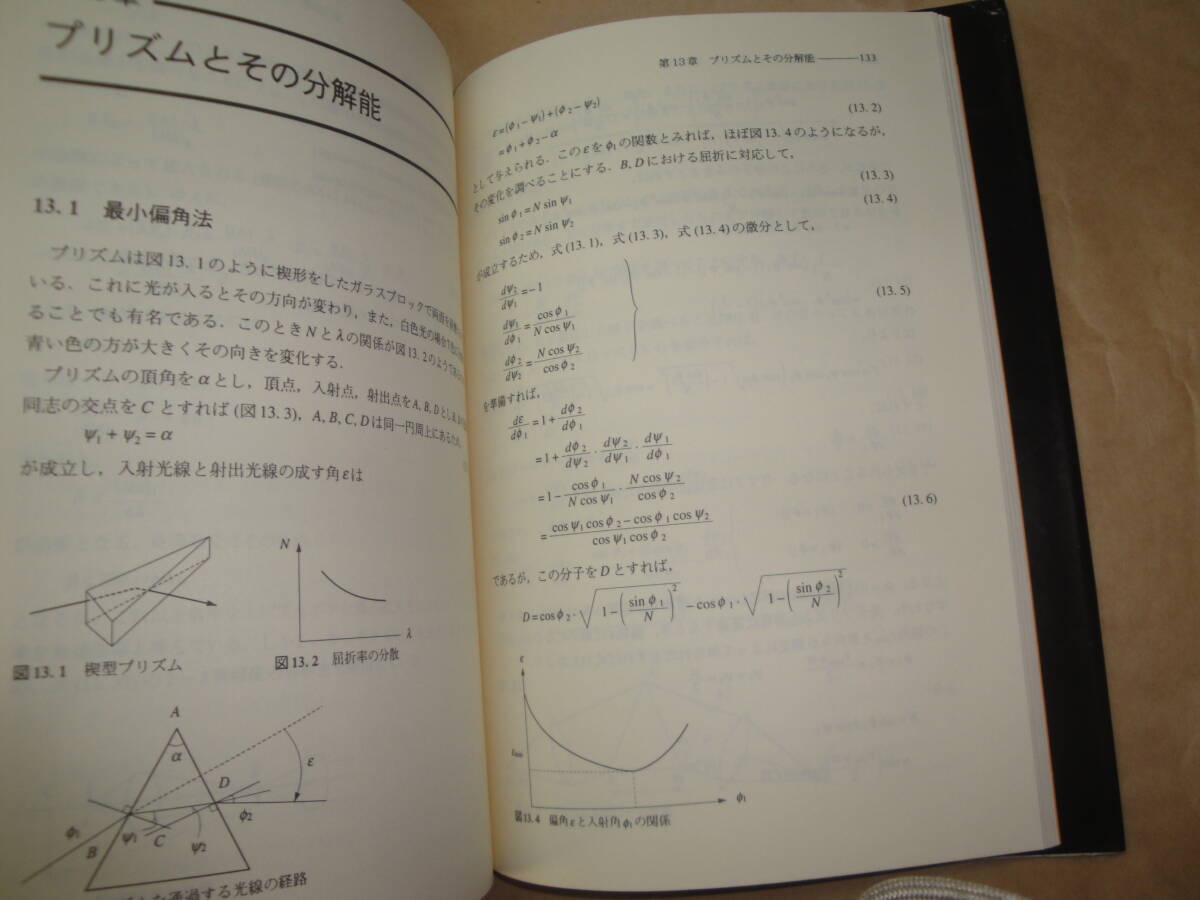 章
プリズムとその分解能
13.1 最小偏角法
プリズムは図13.1のように楔形をしたガラスブロックで両面を
いる．これに光が入るとその方向が変わり，また，白色光の場合
ることでも有名である．このときNとλの関係が図13.2のようで
青い色の方が大きくその向きを変化する．
プリズムの頂角をαとし，頂点，入射点，射出点をA, B, Dとし
同志の交点をCとすれば(図13.3)，A, B, C, Dは同一円周上にあるため
ψ₁+ψ₂=α
が成立し，入射光線と射出光線の成す角εは
N
λ
図13.1 楔型プリズム
図13.2 屈折率の分散
A
α
D
ε
φ₁
B
ψ₁
C
ψ₂
φ₂
通過する光線の経路
第13章 プリズムとその分解能———133
ε=(φ₁−ψ₁)+(φ₂−ψ₂)
=φ₁+φ₂−α (13.2)
として与えられる．このεをφ₁の関数とみれば，ほぼ図13.4のようになるが，
その変化を調べることにする．B, Dにおける屈折に対応して，
sin φ₁=N sin ψ₁ (13.3)
sin φ₂=N sin ψ₂ (13.4)
が成立するため，式(13.1)，式(13.3)，式(13.4)の微分として，
dψ₂/dψ₁=−1
dψ₁/dφ₁=cos φ₁/N cos ψ₁ (13.5)
dφ₂/dψ₂=N cos ψ₂/cos φ₂
を準備すれば，
dε/dφ₁=1+dφ₂/dφ₁
=1+dφ₂/dψ₂·dψ₂/dψ₁·dψ₁/dφ₁
=1−cos φ₁/N cos ψ₁·N cos ψ₂/cos φ₂
=cos ψ₁ cos φ₂−cos φ₁ cos ψ₂/cos ψ₁ cos φ₂ (13.6)
であるが，この分子をDとすれば，
D=cos φ₂·√1−(sin φ₁/N)²−cos φ₁·√1−(sin φ₂/N)²
ε
εmin
φ₁
図13.4 偏角εと入射角φ₁の関係